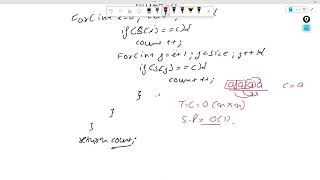 if(s[i]==c){
count++;
for(int j=i+1; j<size; j++){
if(s[j]==c){
count++;
}
}
}
return count;
a a a a c=a
T.C=O(n*n)
S.P=O(1).